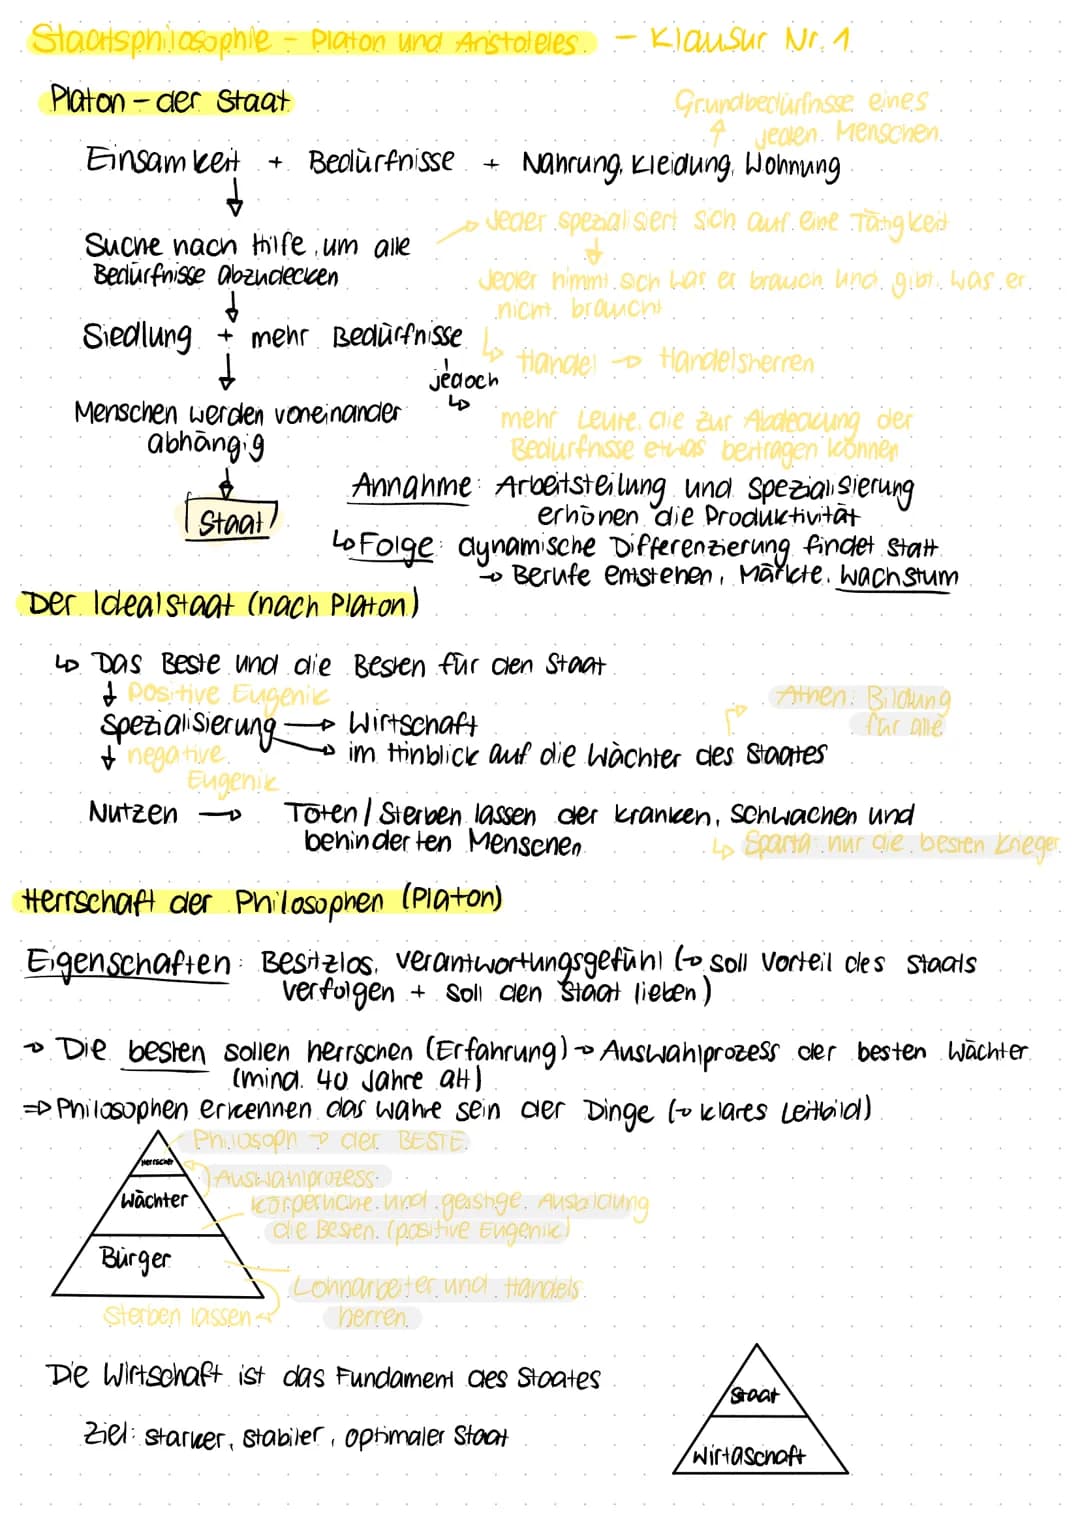 Staatsphilosophie - Platon und Aristoteles. - Klausur Nr. 1
Platon - der Staat
Grundbedürfnisse eines
↑ jeden Menschen.
Einsamkeit + Bedürfnisse + Nahrung, Kleidung, Wohnung
↓
Suche nach Hilfe, um alle
Bedürfnisse abzudecken
→ Jeder spezialisiert sich auf eine Tätigkeit
↓
Jeder nimmt sich was er brauch und gibt, was er
nicht braucht
↓
Siedlung + mehr Bedürfnisse
↳ Handel → Handelsherren
↓
jedoch
↳ mehr Leute, die zur Abdeckung der
Bedürfnisse etwas beitragen können
Menschen werden voneinander
abhängig
↓
Staat
Annahme: Arbeitsteilung und Spezialisierung
erhöhen die Produktivität
↳ Folge: dynamische Differenzierung findet statt
→ Berufe entstehen, Märkte, Wachstum
Der Idealstaat (nach Platon)
↳ Das Beste und die Besten für den Staat
↓ positive Eugenik
Spezialisierung → Wirtschaft
→ im Hinblick auf die Wächter des Staates
Athen: Bildung
für alle
↓ negative
Eugenik
Nutzen → Töten / Sterben lassen der kranken, schwachen und
behinderten Menschen
↳ Sparta: nur die besten Krieger
Herrschaft der Philosophen (Platon)
Eigenschaften: Besitzlos, verantwortungsgefühl (→ soll Vorteil des Staats
verfolgen + soll den Staat lieben)
→ Die besten sollen herrschen (Erfahrung) → Auswahlprozess der besten Wächter
(mind. 40 Jahre alt)
⇒ Philosophen erkennen das wahre sein der Dinge (→ klares Leitbild)
Philosoph → der BESTE
Herrscher
Auswahlprozess
Wächter
körperliche und geistige Ausbildung
die Besten (positive Eugenik)
Bürger
Lohnarbeiter und Handels
herren
Sterben lassen
Die Wirtschaft ist das Fundament des Staates
Ziel: starker, stabiler, optimaler Staat
Staat
Wirtaschaft